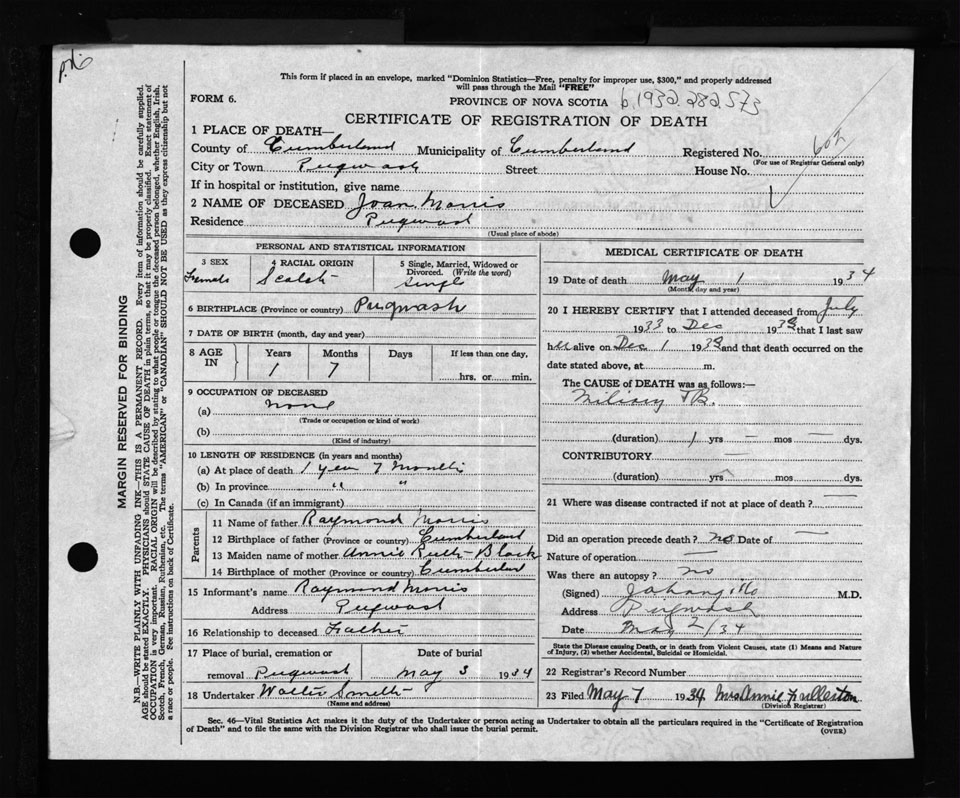 This form if placed in an envelope, marked "Dominion Statistics—Free, penalty for improper use, $300," and properly addressed
will pass through the Mail "FREE"
FORM 6.
PROVINCE OF NOVA SCOTIA b.1932.282573
CERTIFICATE OF REGISTRATION OF DEATH
1 PLACE OF DEATH—
County of Cumberland Municipality of Cumberland Registered No. 602
(For use of Registrar General only)
City or Town Pugwash Street House No.
If in hospital or institution, give name
2 NAME OF DECEASED Joan Morris
Residence Pugwash
(Usual place of abode)
PERSONAL AND STATISTICAL INFORMATION
3 SEX 4 RACIAL ORIGIN 5 Single, Married, Widowed or Divorced. (Write the word)
Female Scotch Single
6 BIRTHPLACE (Province or country) Pugwash
7 DATE OF BIRTH (month, day and year)
8 AGE IN Years Months Days If less than one day,
1 7 hrs. or min.
9 OCCUPATION OF DECEASED
(a) none
(Trade or occupation or kind of work)
(b)
(Kind of industry)
10 LENGTH OF RESIDENCE (in years and months)
(a) At place of death 1 year 7 months
(b) In province " "
(c) In Canada (if an immigrant)
Parents
11 Name of father Raymond Morris
12 Birthplace of father (Province or country) Cumberland
13 Maiden name of mother Annie Ruth Black
14 Birthplace of mother (Province or country) Cumberland
15 Informant's name Raymond Morris
Address Pugwash
16 Relationship to deceased Father
17 Place of burial, cremation or removal Pugwash Date of burial May 3 1934
18 Undertaker Walter Smith
(Name and address)
MEDICAL CERTIFICATE OF DEATH
19 Date of death May 1 1934
(Month, day and year)
20 I HEREBY CERTIFY that I attended deceased from July
1933 to Dec 193 that I last saw
her alive on Dec 1 193 and that death occurred on the
date stated above, at m.
The CAUSE of DEATH was as follows:—
Miliary TB.
(duration) 1 yrs — mos — dys.
CONTRIBUTORY —
(duration) yrs — mos dys.
21 Where was disease contracted if not at place of death? —
Did an operation precede death? no Date of —
Nature of operation —
Was there an autopsy? no
(Signed) M.D.
Address Pugwash
Date May 2/34
State the Disease causing Death, or in death from Violent Causes, state (1) Means and Nature
of Injury, (2) whether Accidental, Suicidal or Homicidal.
22 Registrar's Record Number
23 Filed May 7 1934 Mrs Annie Fullerton
(Division Registrar)
Sec. 46—Vital Statistics Act makes it the duty of the Undertaker or person acting as Undertaker to obtain all the particulars required in the "Certificate of Registration
of Death" and to file the same with the Division Registrar who shall issue the burial permit.
(OVER)
MARGIN RESERVED FOR BINDING
N.B.—WRITE PLAINLY WITH UNFADING INK—THIS IS A PERMANENT RECORD. Every item of information should be carefully supplied.
AGE should be stated EXACTLY. PHYSICIANS should STATE CAUSE OF DEATH in plain terms, so that it may be properly classified. Exact statement of
OCCUPATION is very important. RACIAL ORIGIN will be described by stating to what people or tongue the deceased person belonged, whether English, Irish,
Scotch, French, German, Russian, Ruthenian, etc. The terms "AMERICAN" or "CANADIAN" SHOULD NOT BE USED as they express citizenship but not
a race or people. See instructions on back of Certificate.